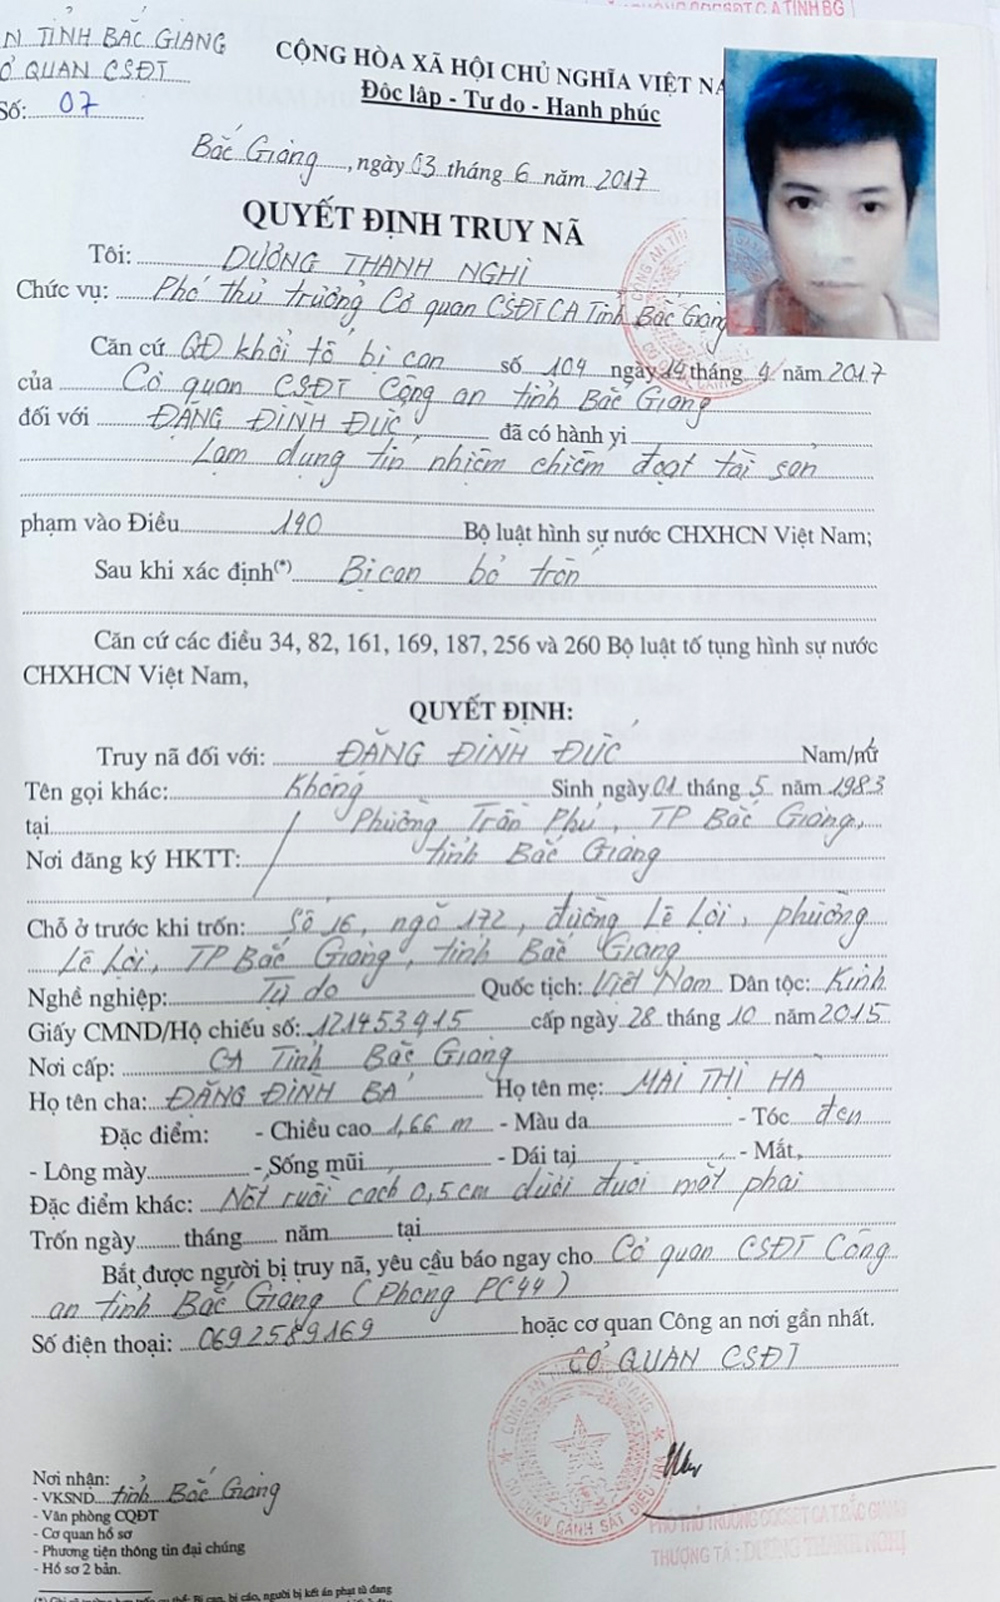 CSĐT C A TỈNH BG
N TỈNH BẮC GIANG
CỘNG HÒA XÃ HỘI CHỦ NGHĨA VIỆT NA
Ơ QUAN CSĐT
Độc lập - Tự do - Hạnh phúc
Số: 07
Bắc Giang, ngày 03 tháng 6 năm 2017
QUYẾT ĐỊNH TRUY NÃ
Tôi: DƯƠNG THANH NGHỊ
Chức vụ: Phó thủ trưởng Cơ quan CSĐT CA Tỉnh Bắc Giang
Căn cứ QĐ khởi tố bị can số 104 ngày 14 tháng 4 năm 2017
của Cơ quan CSĐT Công an tỉnh Bắc Giang
đối với ĐẶNG ĐÌNH ĐỨC đã có hành vi
Lạm dụng tín nhiệm chiếm đoạt tài sản
phạm vào Điều 140 Bộ luật hình sự nước CHXHCN Việt Nam;
Sau khi xác định(*) Bị can bỏ trốn
Căn cứ các điều 34, 82, 161, 169, 187, 256 và 260 Bộ luật tố tụng hình sự nước
CHXHCN Việt Nam,
QUYẾT ĐỊNH:
Truy nã đối với: ĐẶNG ĐÌNH ĐỨC Nam/nữ
Tên gọi khác: Không Sinh ngày 01 tháng 5 năm 1983
tại Phường Trần Phú, TP Bắc Giang,
Nơi đăng ký HKTT: tỉnh Bắc Giang
Chỗ ở trước khi trốn: Số 16, ngõ 172, đường Lê Lợi, phường
Lê Lợi, TP Bắc Giang, tỉnh Bắc Giang
Nghề nghiệp: Tự do Quốc tịch: Việt Nam Dân tộc: Kinh
Giấy CMND/Hộ chiếu số: 121453915 cấp ngày 28 tháng 10 năm 2015
Nơi cấp: CA Tỉnh Bắc Giang
Họ tên cha: ĐẶNG ĐÌNH BA Họ tên mẹ: MAI THỊ HÀ
Đặc điểm: - Chiều cao 1,66 m - Màu da - Tóc đen
- Lông mày - Sống mũi - Dái tai - Mắt
Đặc điểm khác: Nốt ruồi cách 0,5cm dưới đuôi mắt phải
Trốn ngày tháng năm tại
Bắt được người bị truy nã, yêu cầu báo ngay cho Cơ quan CSĐT Công
an tỉnh Bắc Giang (Phòng PC44)
Số điện thoại: 0692589169 hoặc cơ quan Công an nơi gần nhất.
CƠ QUAN CSĐT
CƠ QUAN CẢNH SÁT ĐIỀU TRA
Nơi nhận:
- VKSND tỉnh Bắc Giang
- Văn phòng CQĐT
- Cơ quan hồ sơ
- Phương tiện thông tin đại chúng
- Hồ sơ 2 bản.
PHÓ THỦ TRƯỞNG CQCSĐT CA T.BẮC GIANG
THƯỢNG TÁ: DƯƠNG THANH NGHỊ